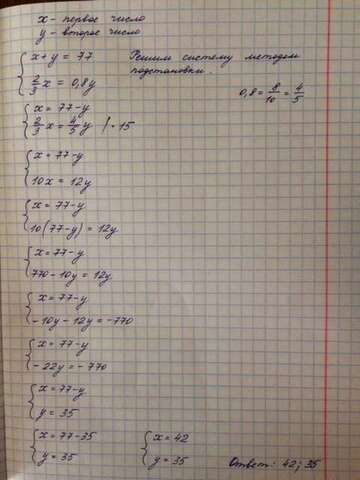 x - первое число
y - второе число
{ x + y = 77
{ 2/3 x = 0,8y
Решим систему методом
подстановки.
0,8 = 8/10 = 4/5
{ x = 77 - y
{ 2/3 x = 4/5 y / · 15
{ x = 77 - y
{ 10x = 12y
{ x = 77 - y
{ 10(77 - y) = 12y
{ x = 77 - y
{ 770 - 10y = 12y
{ x = 77 - y
{ -10y - 12y = -770
{ x = 77 - y
{ -22y = -770
{ x = 77 - y
{ y = 35
{ x = 77 - 35
{ y = 35
{ x = 42
{ y = 35
Ответ: 42; 35